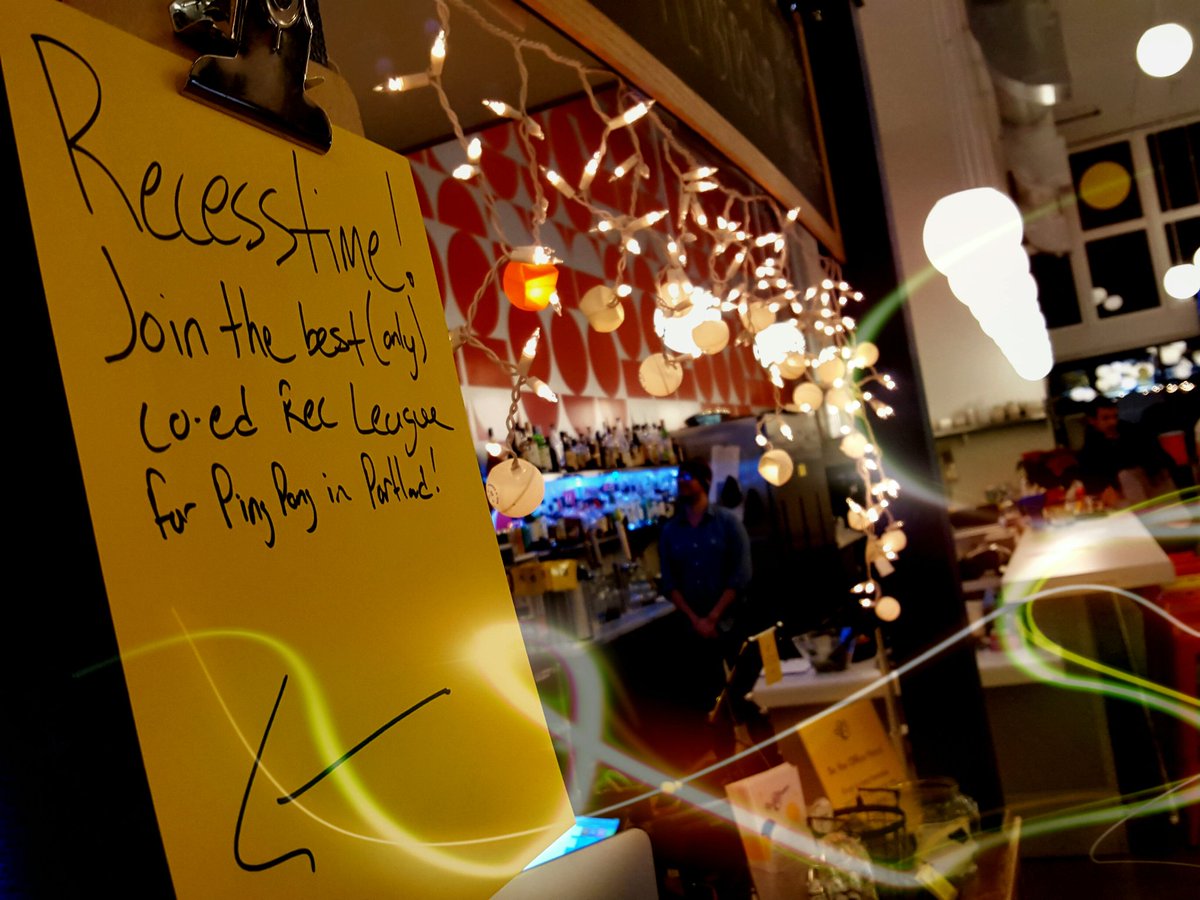 Recesstime!
Join the best (only)
co-ed Rec League
for Ping Pong in Portland!